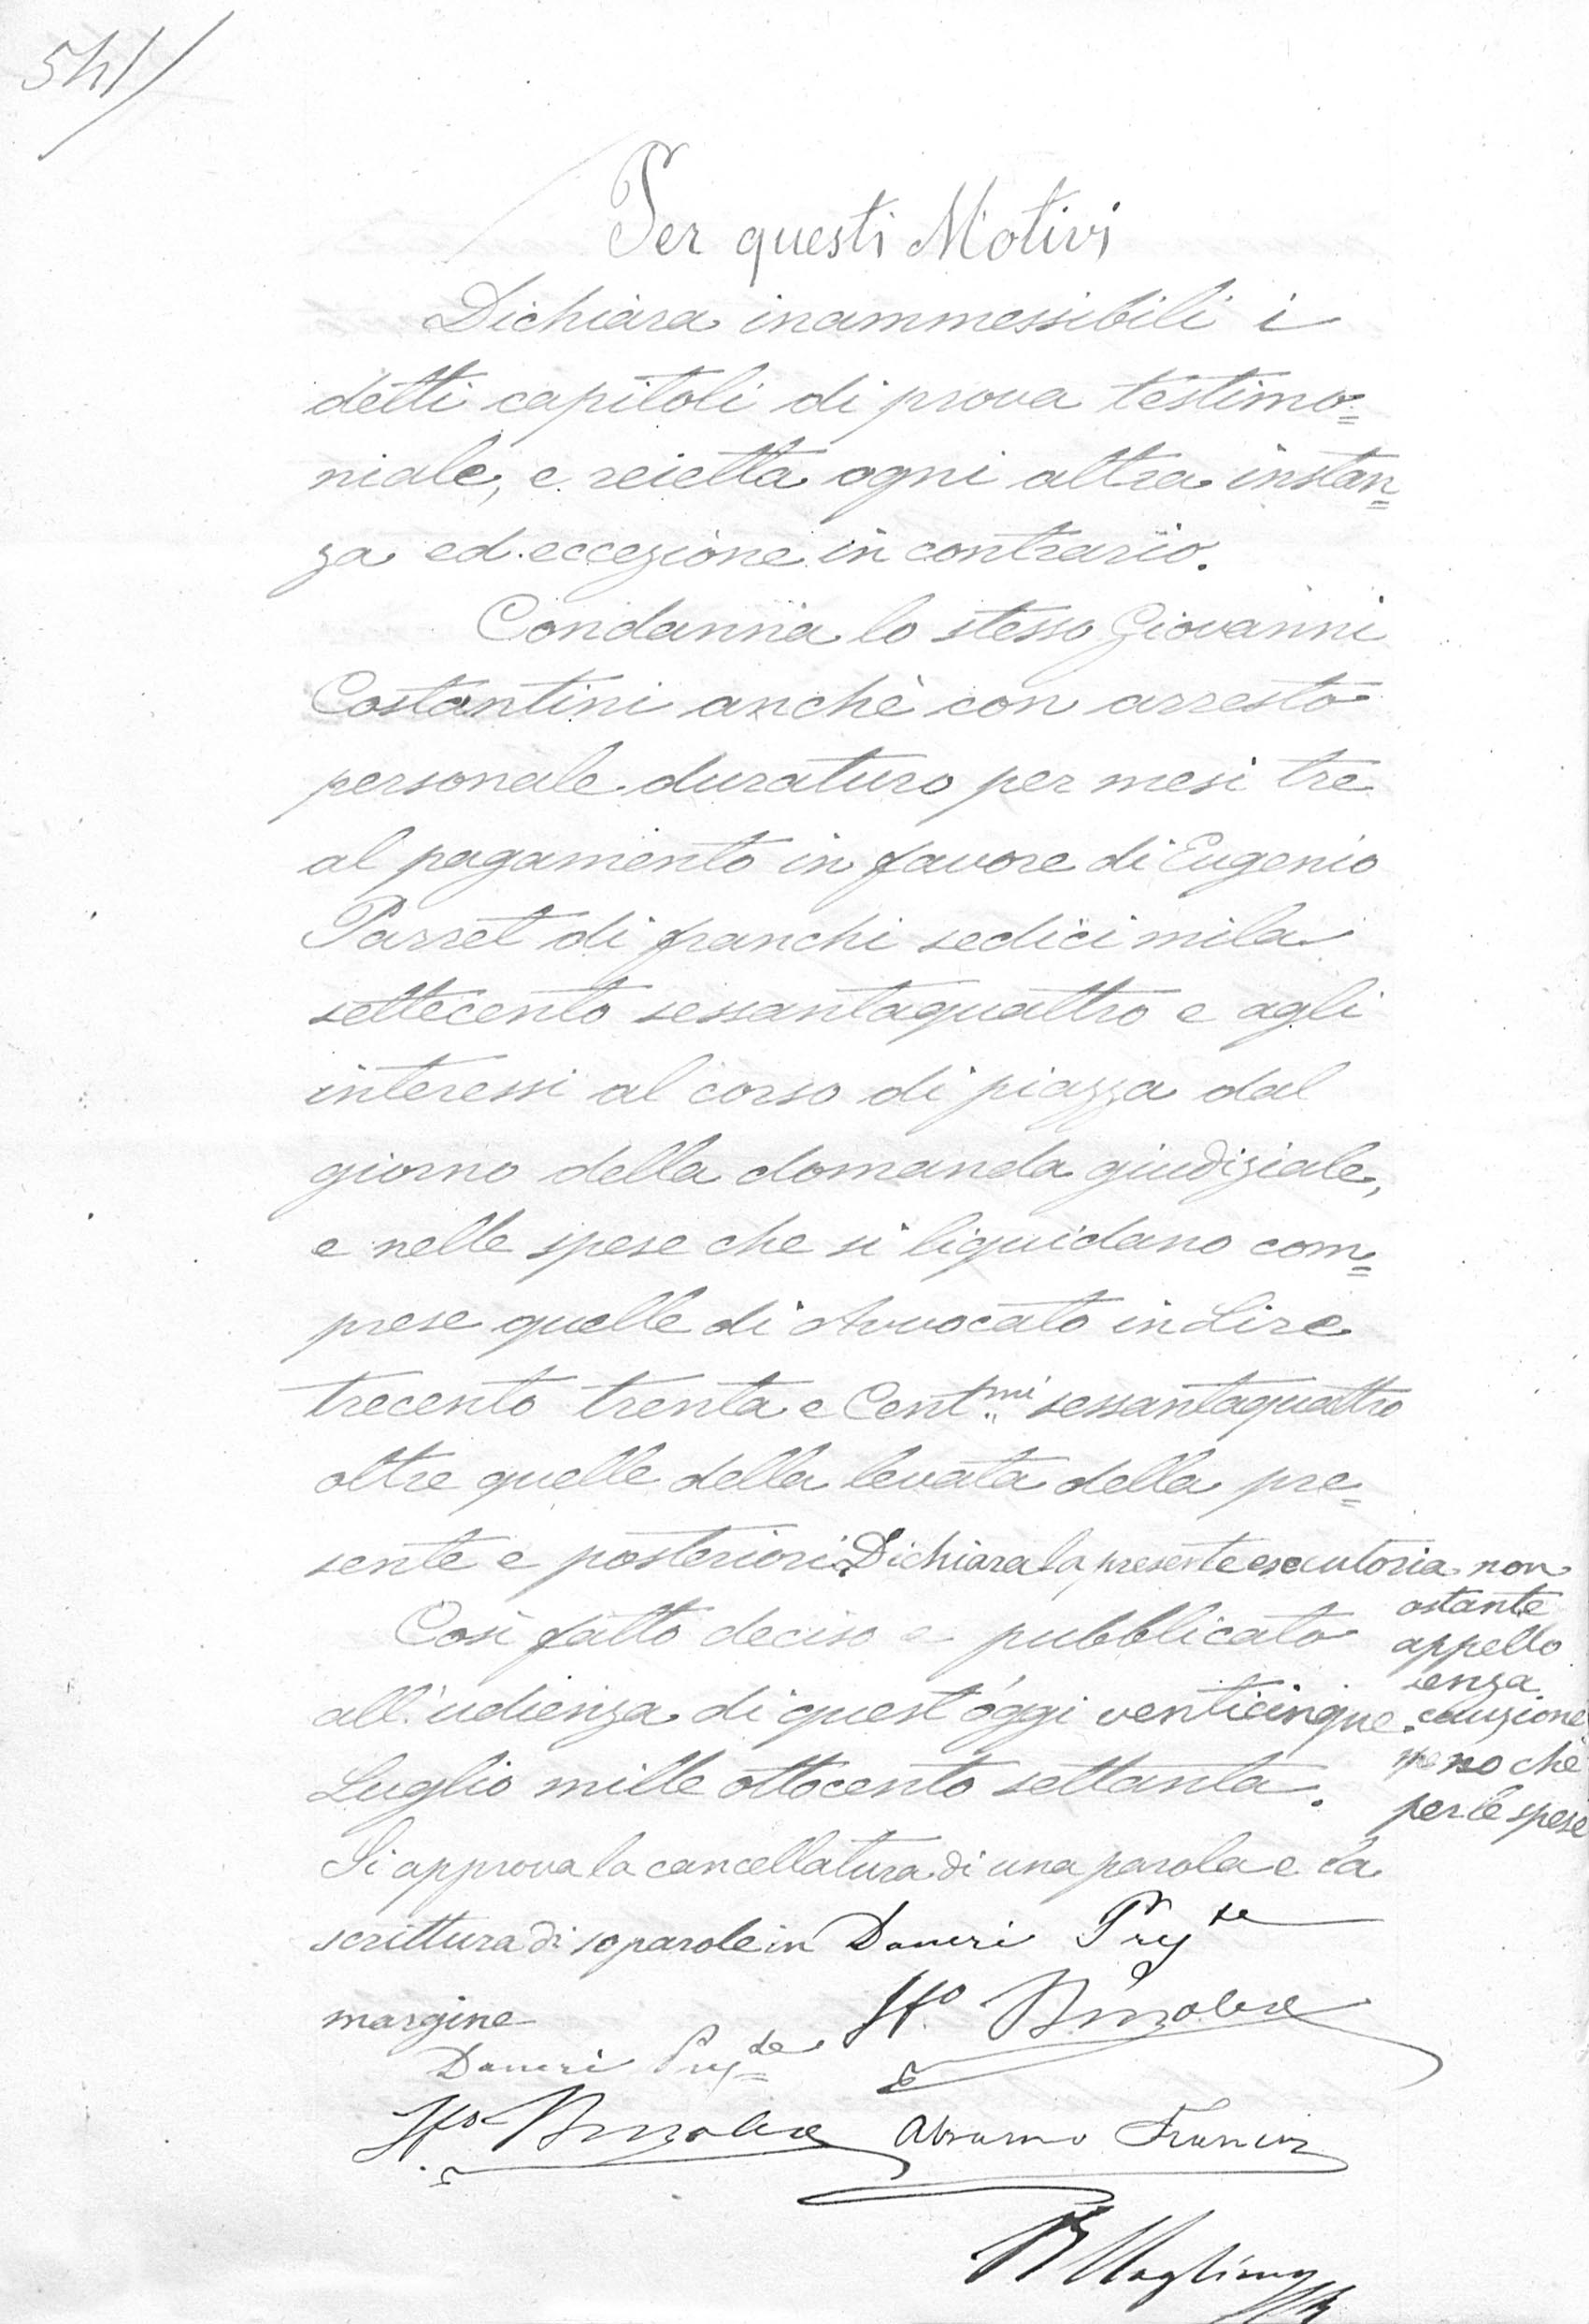 541
Per questi Motivi
Dichiara inammessibili i
detti capitoli di prova testimo=
niale, e reietta ogni altra instan=
za ed eccezione in contrario.
Condanna lo stesso Giovanni
Costantini anchè con arresto
personale duraturo per mesi tre
al pagamento in favore di Eugenio
Parret di franchi sedici mila
settecento sessantaquattro e agli
interessi al corso di piazza dal
giorno della domanda giudiziale,
e nelle spese che si liquidano com=
prese quelle di Avvocato in Lire
trecento trenta e Cent.mi sessantaquattro
oltre quelle della levata della pre=
sente e posteriori. Dichiara la presente esecutoria non
ostante
appello
senza
cauzione
meno che
per le spese
Così fatto deciso e pubblicato
all'udienza di quest'oggi venticinque
Luglio mille ottocento settanta.
Si approva la cancellatura di una parola e la
scrittura di 10 parole in
margine
Daneri
Daneri